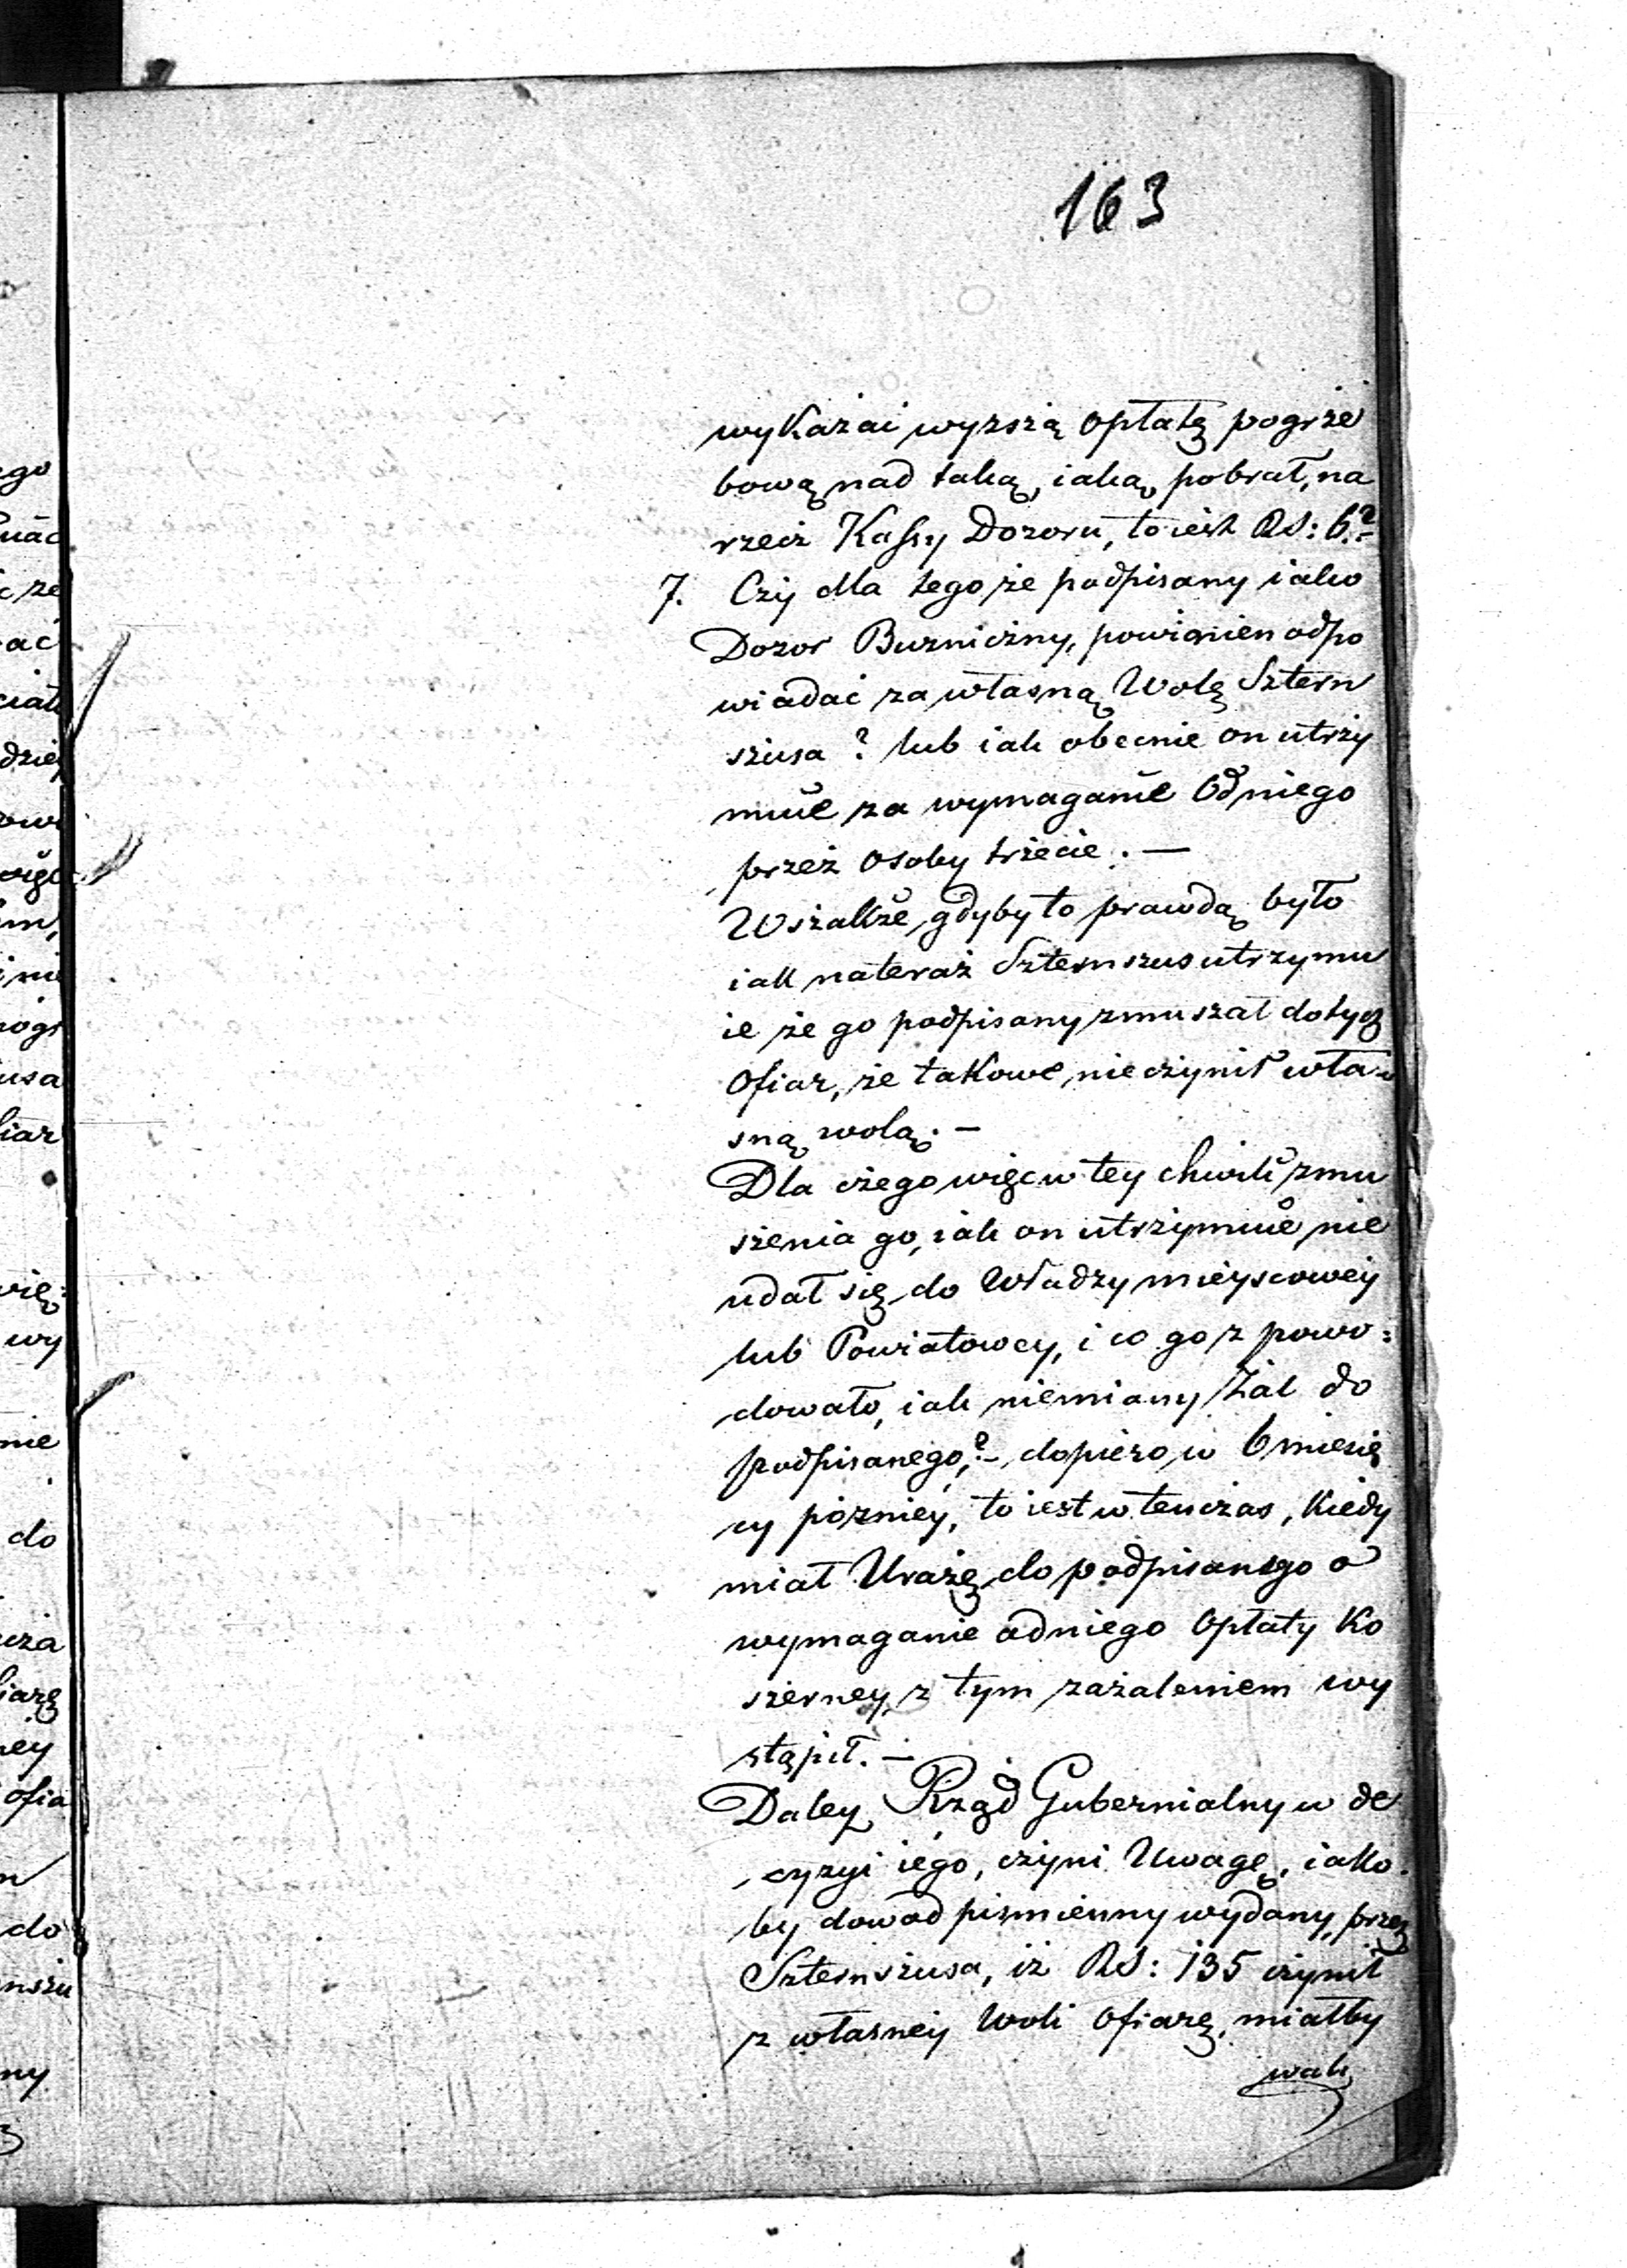 163
wykazai wyzszą opłatę pogrze
bową nad taką, iaką pobrał, na
rzecz Kassy Dozoru, to iest RS: 6.?–
7. Czy dla tego że podpisany iako
Dozor Buzniczny, powinien odpo
wiadać za własną Wolę Sztern
szusa? lub iak obecnie on utrzy
muie za wymaganie od niego
przez osoby trzecie. —
Wszakże gdyby to prawdą było
iak nateraz Szternszus utrzymu
ie że go podpisany zmuszał do tych
Ofiar, że takowe nie czynił wła-
sną wolą. –
Dla czego więc w tey chwili zmu
szenia go, iak on utrzymuie nie
udał się do Władzy mieyscowey
lub Powiatowey, i co go z powo:
dowało, iak niemiany Żal do
podpisanego,?– dopiero w 6 miesię
cy pózniey, to iest w tenczas, Kiedy
miał Urazę do podpisanego o
wymaganie od niego Opłaty Ko
szerney, z tym zażaleniem wy
stąpił. –
Daley Rząd Gubernialny w de
cyzyi iego, czyni Uwagę, iako
by dowod pismienny wydany przez
Szternszusa, iż RS: 135 czynił
z własney Woli Ofiarę, miałby